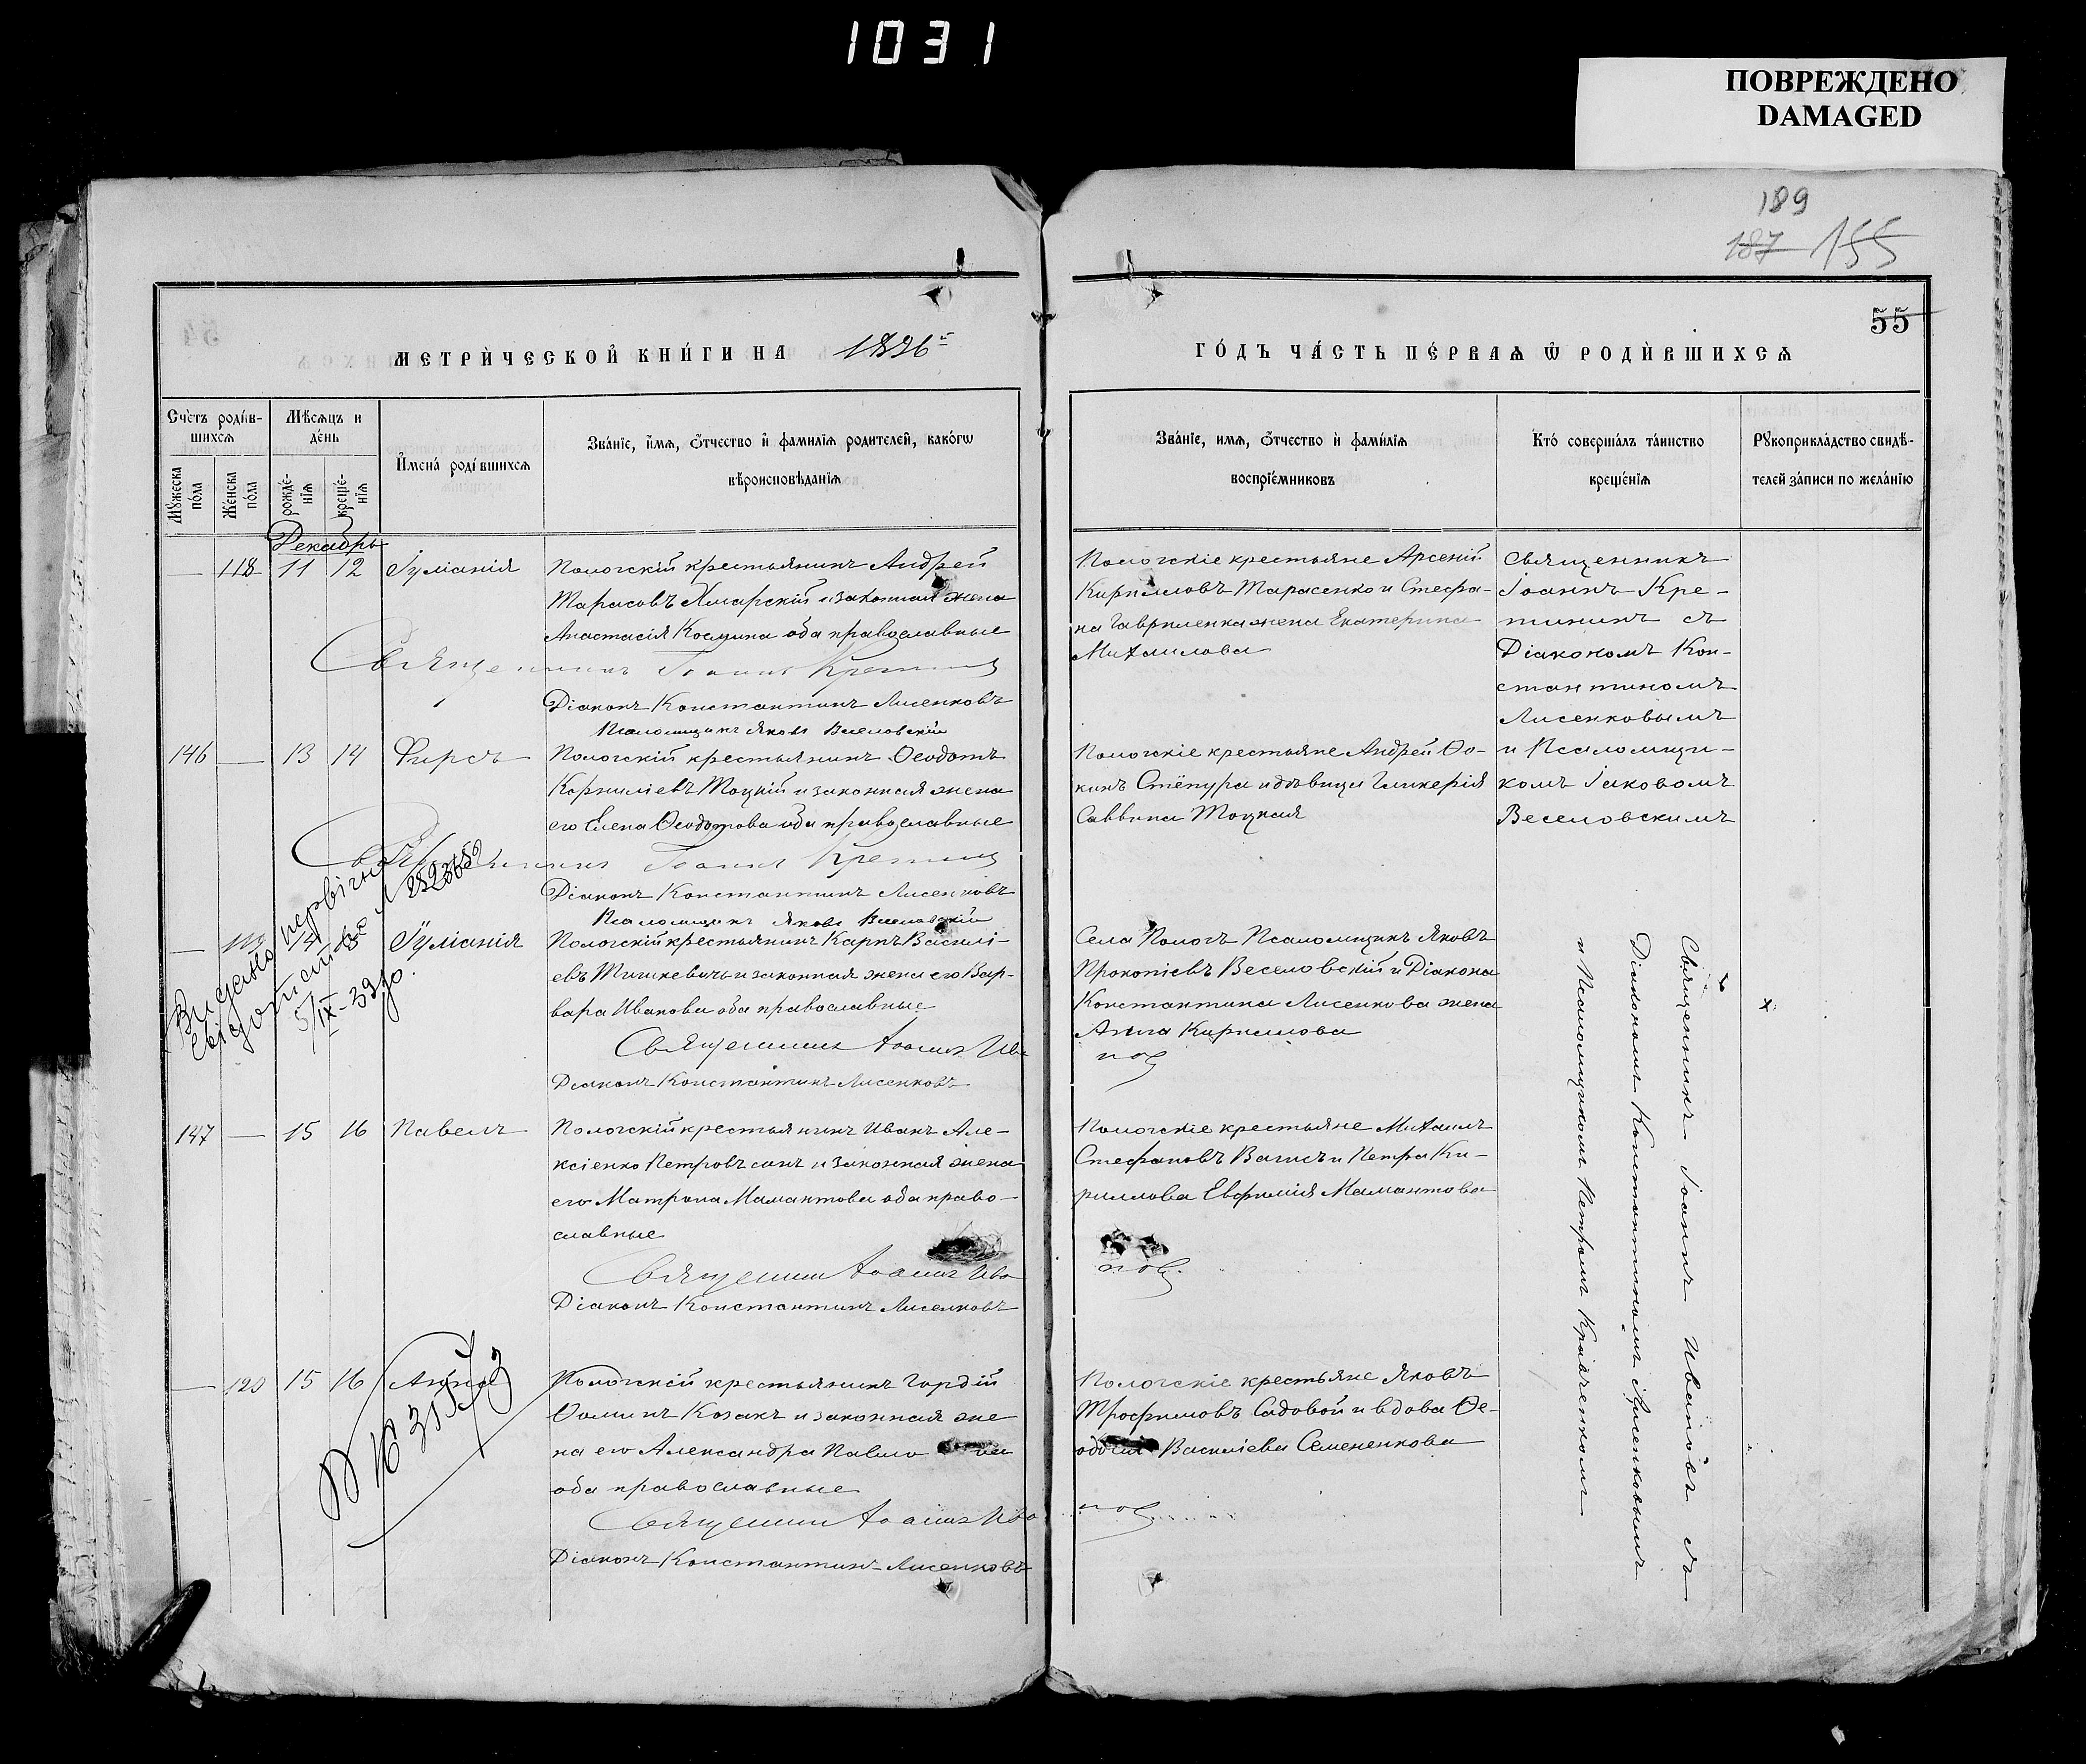 1031
ПОВРЕЖДЕНО
DAMAGED
189
187 155
55
МЕТРИ́ЧЕСКОЙ КНИ́ГИ НА 1896й
ГО́ДЪ ЧА́СТЬ ПЕ́РВАѦ Ѡ РОДИ́ВШИХСѦ
Сче́тъ роди́в-
шихсѧ
Мѣ́сѧцъ и
де́нь
Мꙋ́жеска
по́ла
Же́нска
по́ла
рожде́-
нїѧ
креще́-
нїѧ
И҆мена́ роди́вшихсѧ
Зва́нїе, и҆́мѧ, ѻ҆́тчество и҆ фамилїѧ родителей, како́гѡ
вѣроисповѣ́данїѧ
Зва́нїе, имѧ, ѻ҆́тчество и҆ фами́лїѧ
воспрїе́мниковъ
Кто́ соверша́лъ та́инство
креще́нїѧ
Рꙋкоприкла́дство свидѣ́-
телей за́писи по жела́нїю
Декабрь
— 118 11 12 Іуліанія
Пологскій крестьянинъ Андрей
Тарасовъ Хмарскій и законная жена
Анастасія Космина оба православные
Священникъ Іоаннъ Кретинин
Діаконъ Константинъ Лисенковъ
Псаломщикъ Яковъ Веселовскій
Пологскіе крестьяне Арсеній
Кирилловъ Тарасенко и Стефа-
на Гавриленка жена Екатерина
Михаилова
Священникъ
Іоаннъ Кре-
тининъ съ
Діакономъ Кон-
стантиномъ
Лисенковымъ
и Псаломщи-
комъ Іаковомъ
Веселовскимъ
146 — 13 14 Фирсъ
Пологскій крестьянинъ Ѳеодотъ
Корниліевъ Тоцкій и законная жена
его Елена Ѳеодотова оба православные
Священникъ Іоаннъ Кретинин
Діаконъ Константинъ Лисенковъ
Псаломщикъ Яковъ Веселовскій
Пологскіе крестьяне Андрей Ѳо-
минъ Стёпура и дѣвица Гликерія
Саввина Тоцкая
— 119 14 15 Іуліанія
Пологскій крестьянинъ Карпъ Василі-
евъ Тишкевичъ и законная жена его Вар-
вара Иванова оба православные
Священникъ Іоаннъ Ива
нов
Діаконъ Константинъ Лисенковъ
Села Пологъ Псаломщикъ Яковъ
Прокопіевъ Веселовскій и Діакона
Константина Лисенкова жена
Анна Кириллова
Видано первічне
свідоцтво
5/IX-39р.
147 — 15 16 Павелъ
Пологскій крестьянинъ Иванъ Але-
ксіенко Петровъ сынъ и законная жена
его Матрона Мамантова оба право-
славные
Священник Іоаннъ Ива
нов.
Діаконъ Константинъ Лисенковъ
Пологскіе крестьяне Михаилъ
Стефановъ Вагисъ и Петра Ки-
риллова Евфимія Мамантова
— 120 15 16 Анна
Пологскій крестьянинъ Гордій
Ѳоминъ Козакъ и законная же
на его Александра Павло ва
оба православные
Священник Іоаннъ Ива
нов
Діаконъ Константинъ Лисенковъ
Пологскіе крестьяне Яковъ
Трофимовъ Садовой и вдова Ѳе-
одосія Василіева Семененкова
Священникъ Іоаннъ Ивановъ съ
Діакономъ Константиномъ Лисенковымъ
и Псаломщикомъ Петромъ Кравченкомъ